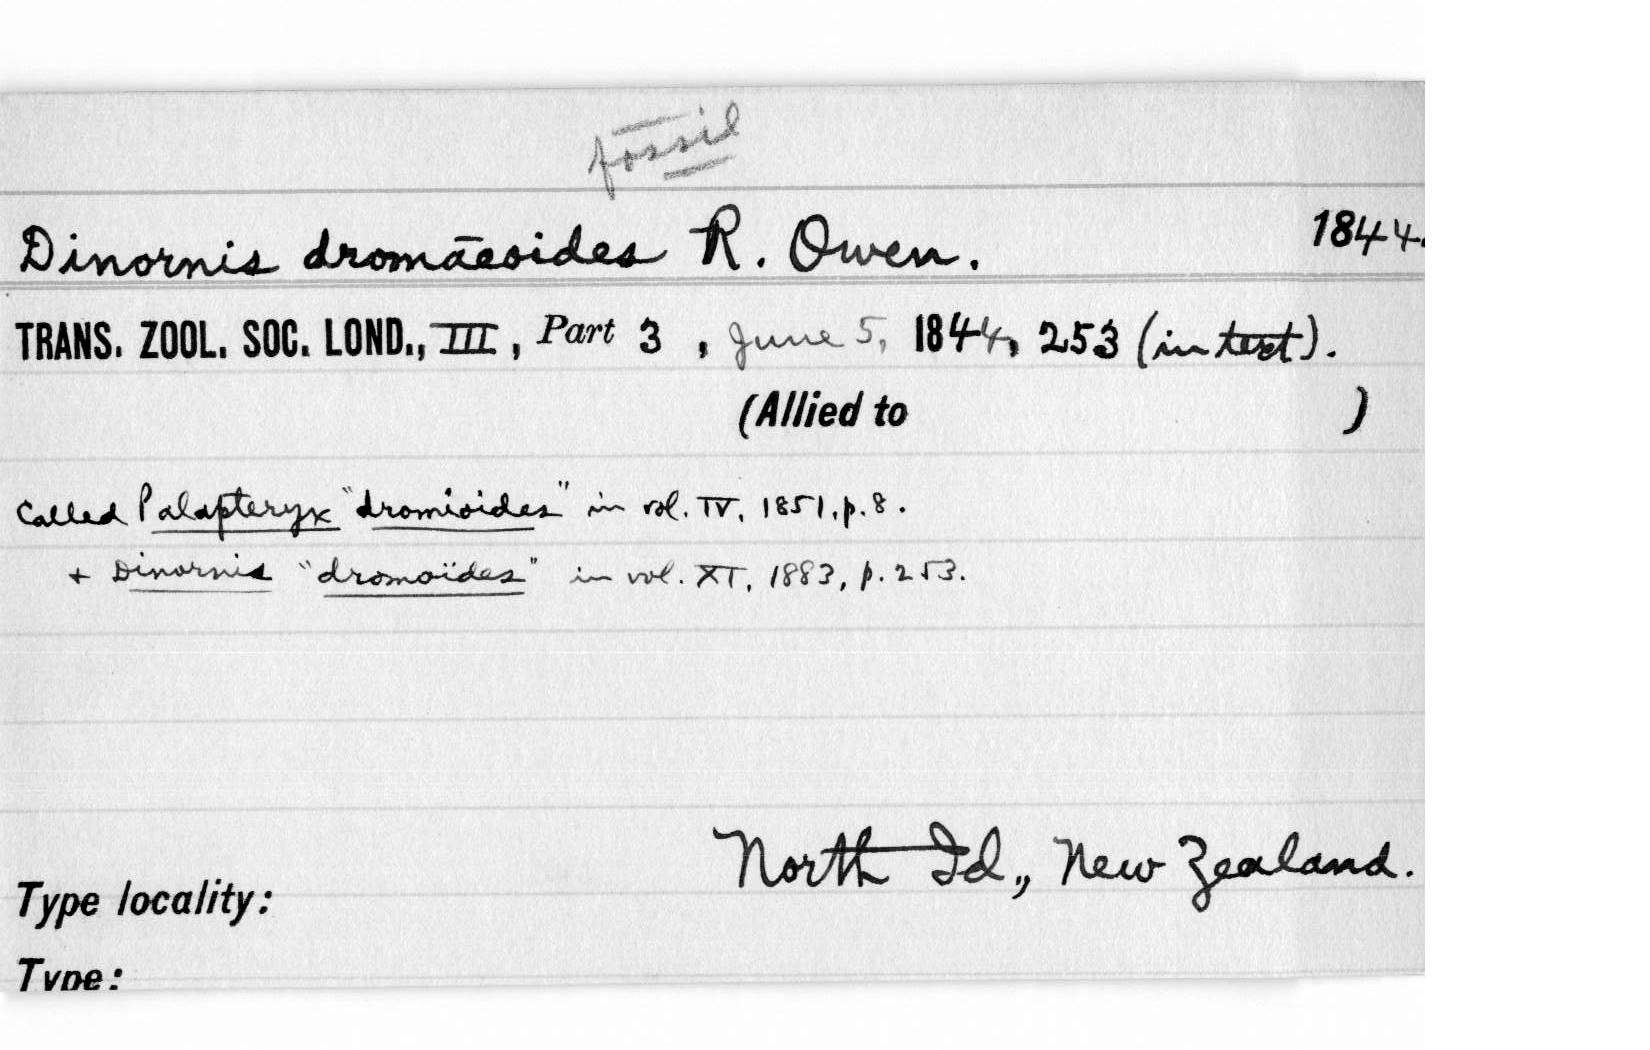 fossil
Dinornis dromæoides R. Owen. 1844.
TRANS. ZOOL. SOC. LOND., III, Part 3, June 5, 1844, 253 (in text).
(Allied to )
Called Palapteryx "dromioides" in vol. IV, 1851, p. 8.
+ Dinornis "dromoïdes" in vol. XI, 1883, p. 253.
North Id., New Zealand.
Type locality:
Type: